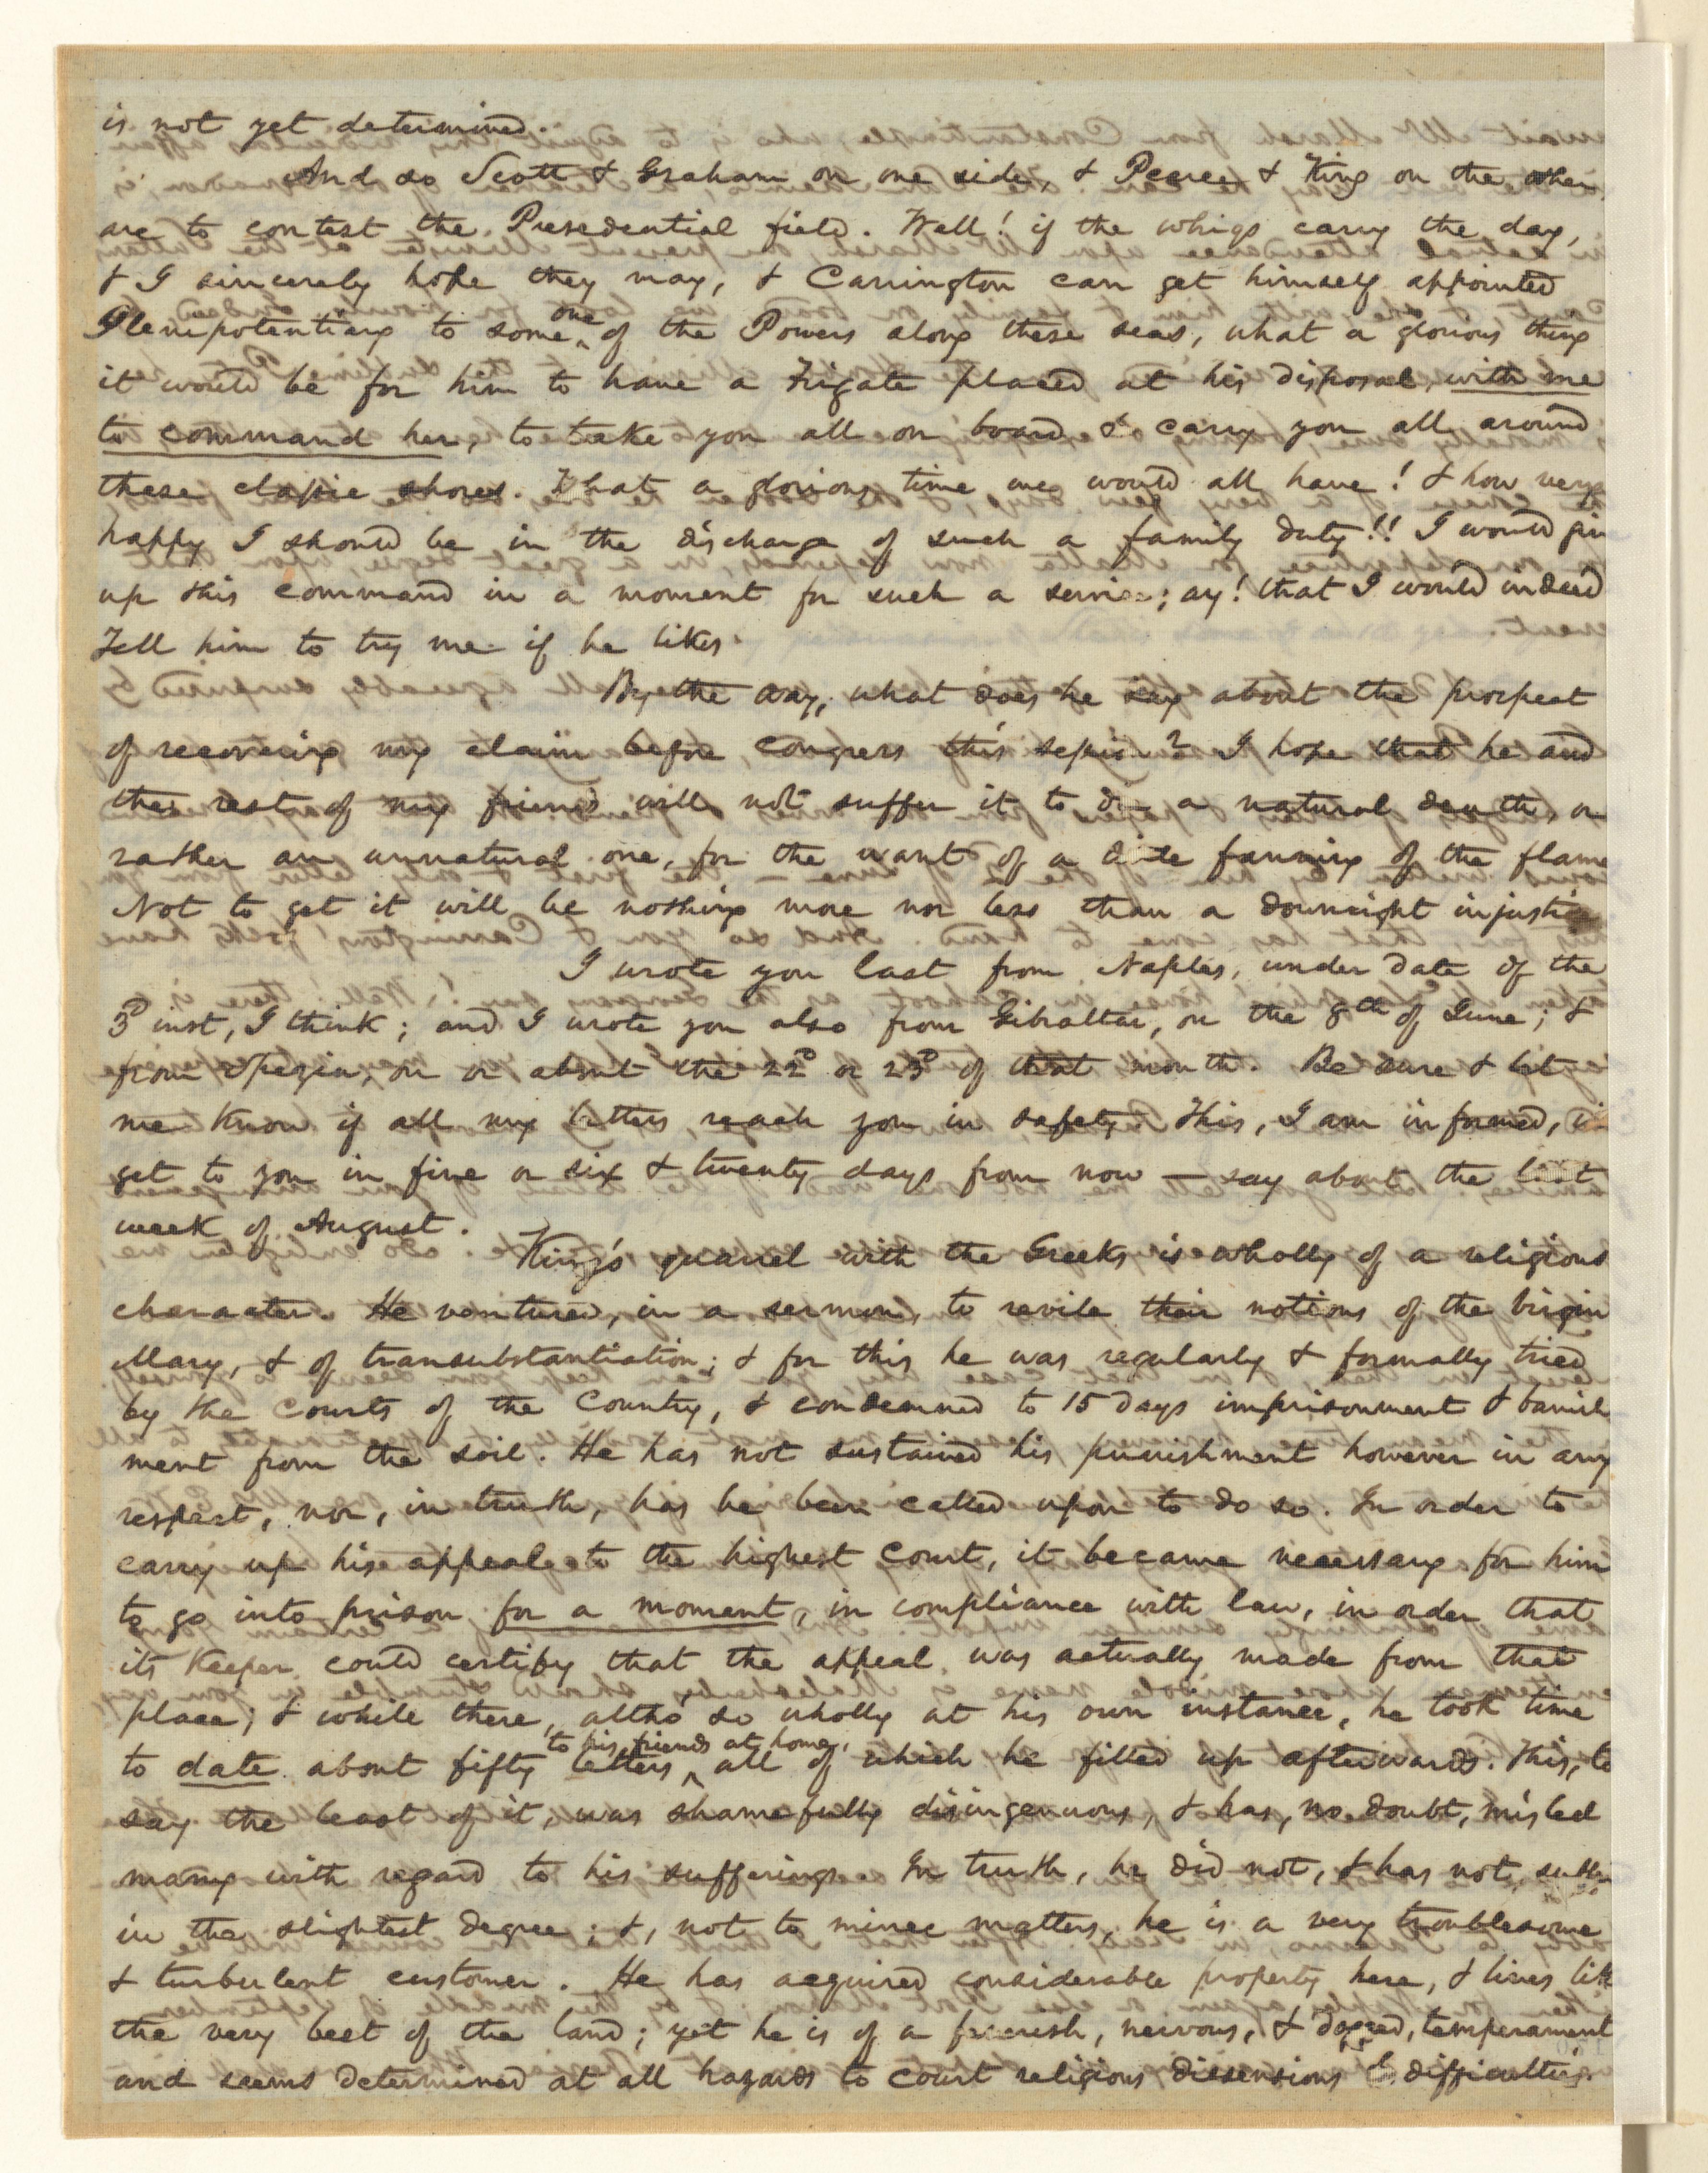 is not yet determined.
And so Scott & Graham on one side, & Peerce & King on the other
are to contest the Presedential field. Well! if the whigs carry the day,
& I sincerely hope they may, & Carrington can get himself appointed
Plenipotentiary to some one of the Powers along these seas, what a glorious thing
it would be for him to have a Frigate placed at his disposal, with me
to command her, to take you all on board & carry you all around
these classic shores. What a glorious time we would all have! & how very
happy I should be in the discharge of such a family duty!! I would giv
up this command in a moment for such a service; ay! that I would indeed
Tell him to try me if he likes.
By the way, what does he say about the prospect
of recovering my claim before Congress this session? I hope that he and
the rest of my friends will not suffer it to die a natural death, or
rather an unnatural one, for the want of a little fanning of the flame
Not to get it will be nothing more nor less than a downright injustice
I wrote you last from Naples, under date of the
3d inst, I think; and I wrote you also from Gibraltar, on the 8th of June; &
from Spezia, on or about the 22d or 23d of that month. Be sure & let
me know if all my letters reach you in safety. This, I am informed,
get to you in five or six & twenty days from now — say about the last
week of August.
King's quarrel with the Greeks is wholly of a religious
character. He ventured, in a sermon, to revile their notions of the Virgin
Mary, & of transubstantiation; & for this he was regularly & formally tried
by the Courts of the Country, & condemned to 15 days imprisonment & banish
ment from the soil. He has not sustained his punishment however in any
respect, nor, in truth, has he been called upon to do so. In order to
carry up his appeal to the highest Court, it became necessary for him
to go into prison for a moment, in compliance with law, in order that
its Keeper could certify that the appeal was actually made from that
place; & while there, altho' so wholly at his own instance, he took time
to date about fifty letters to his friends at home, all of which he filled up afterwards. This, to
say the least of it, was shamefully disingenuous, & has, no doubt, misled
many with regard to his sufferings. In truth, he did not, & has not, suffer
in the slightest degree; &, not to mince matters, he is a very troublesome
& turbulent customer. He has acquired considerable property here, & lives lik
the very best of the land; yet he is of a feverish, nervous, & dogged, temperament
and seems determined at all hazards to court religious dissensions & difficulties.